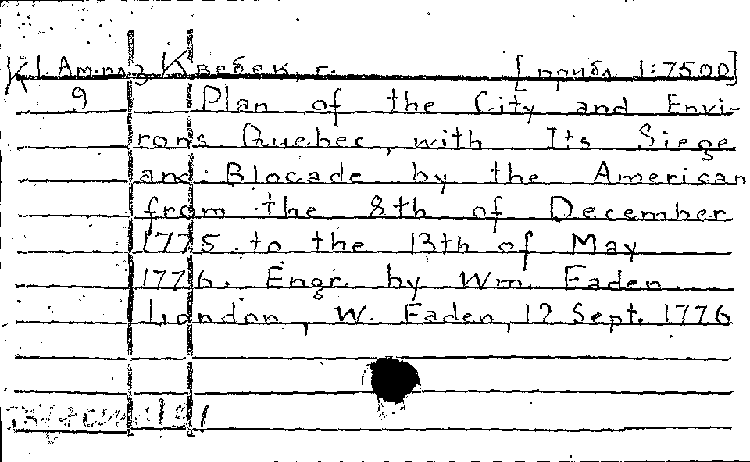 К1 Амп 3 Квебек, г. [приδл 1:7500]
9 Plan of the City and Envi-
rons Quebec, with Its Siege
and Blocade by the American
from the 8th of December
1775 to the 13th of May
1776. Engr. by Wm. Faden
London, W. Faden, 12 Sept. 1776